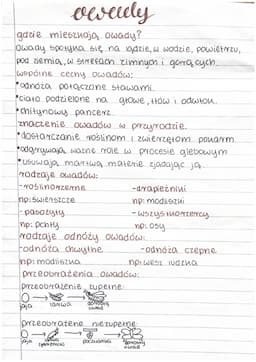 owady
gdzie mieszkają owady?
owady spotyka się na lądzie, w wodzie, powietrzu,
pod ziemią, w strefach zimnych i gorących.
wspólne cechy owadów:
•odnóża połączone stawami.
•ciało podzielone na głowe, tłów i odwłok.
•chitynowy pancerz.
znaczenie owadów w przyrodzie.
•dostarczanie roślinom i zwierzętom pokarm.
•odgrywają ważne role w procesie glebowym
•usuwają martwą materie zjadając ją.
rodzaje owadów:
-roślinożerne -drapieżniki
np: świerszcze np: modliszki
-pasożyty -wszystkożercy
np: pchły np: osy
rodzaje odnóży owadów:
-odnóża chwytne -odnóża czepne
np: modliszka np: wesz ludzka
przeobrażenia owadów:
przeobrażenie zupełne:
jaja larwa dorosły owad
przeobrażenie niezupełne
jaja poczwarka dorosły owad